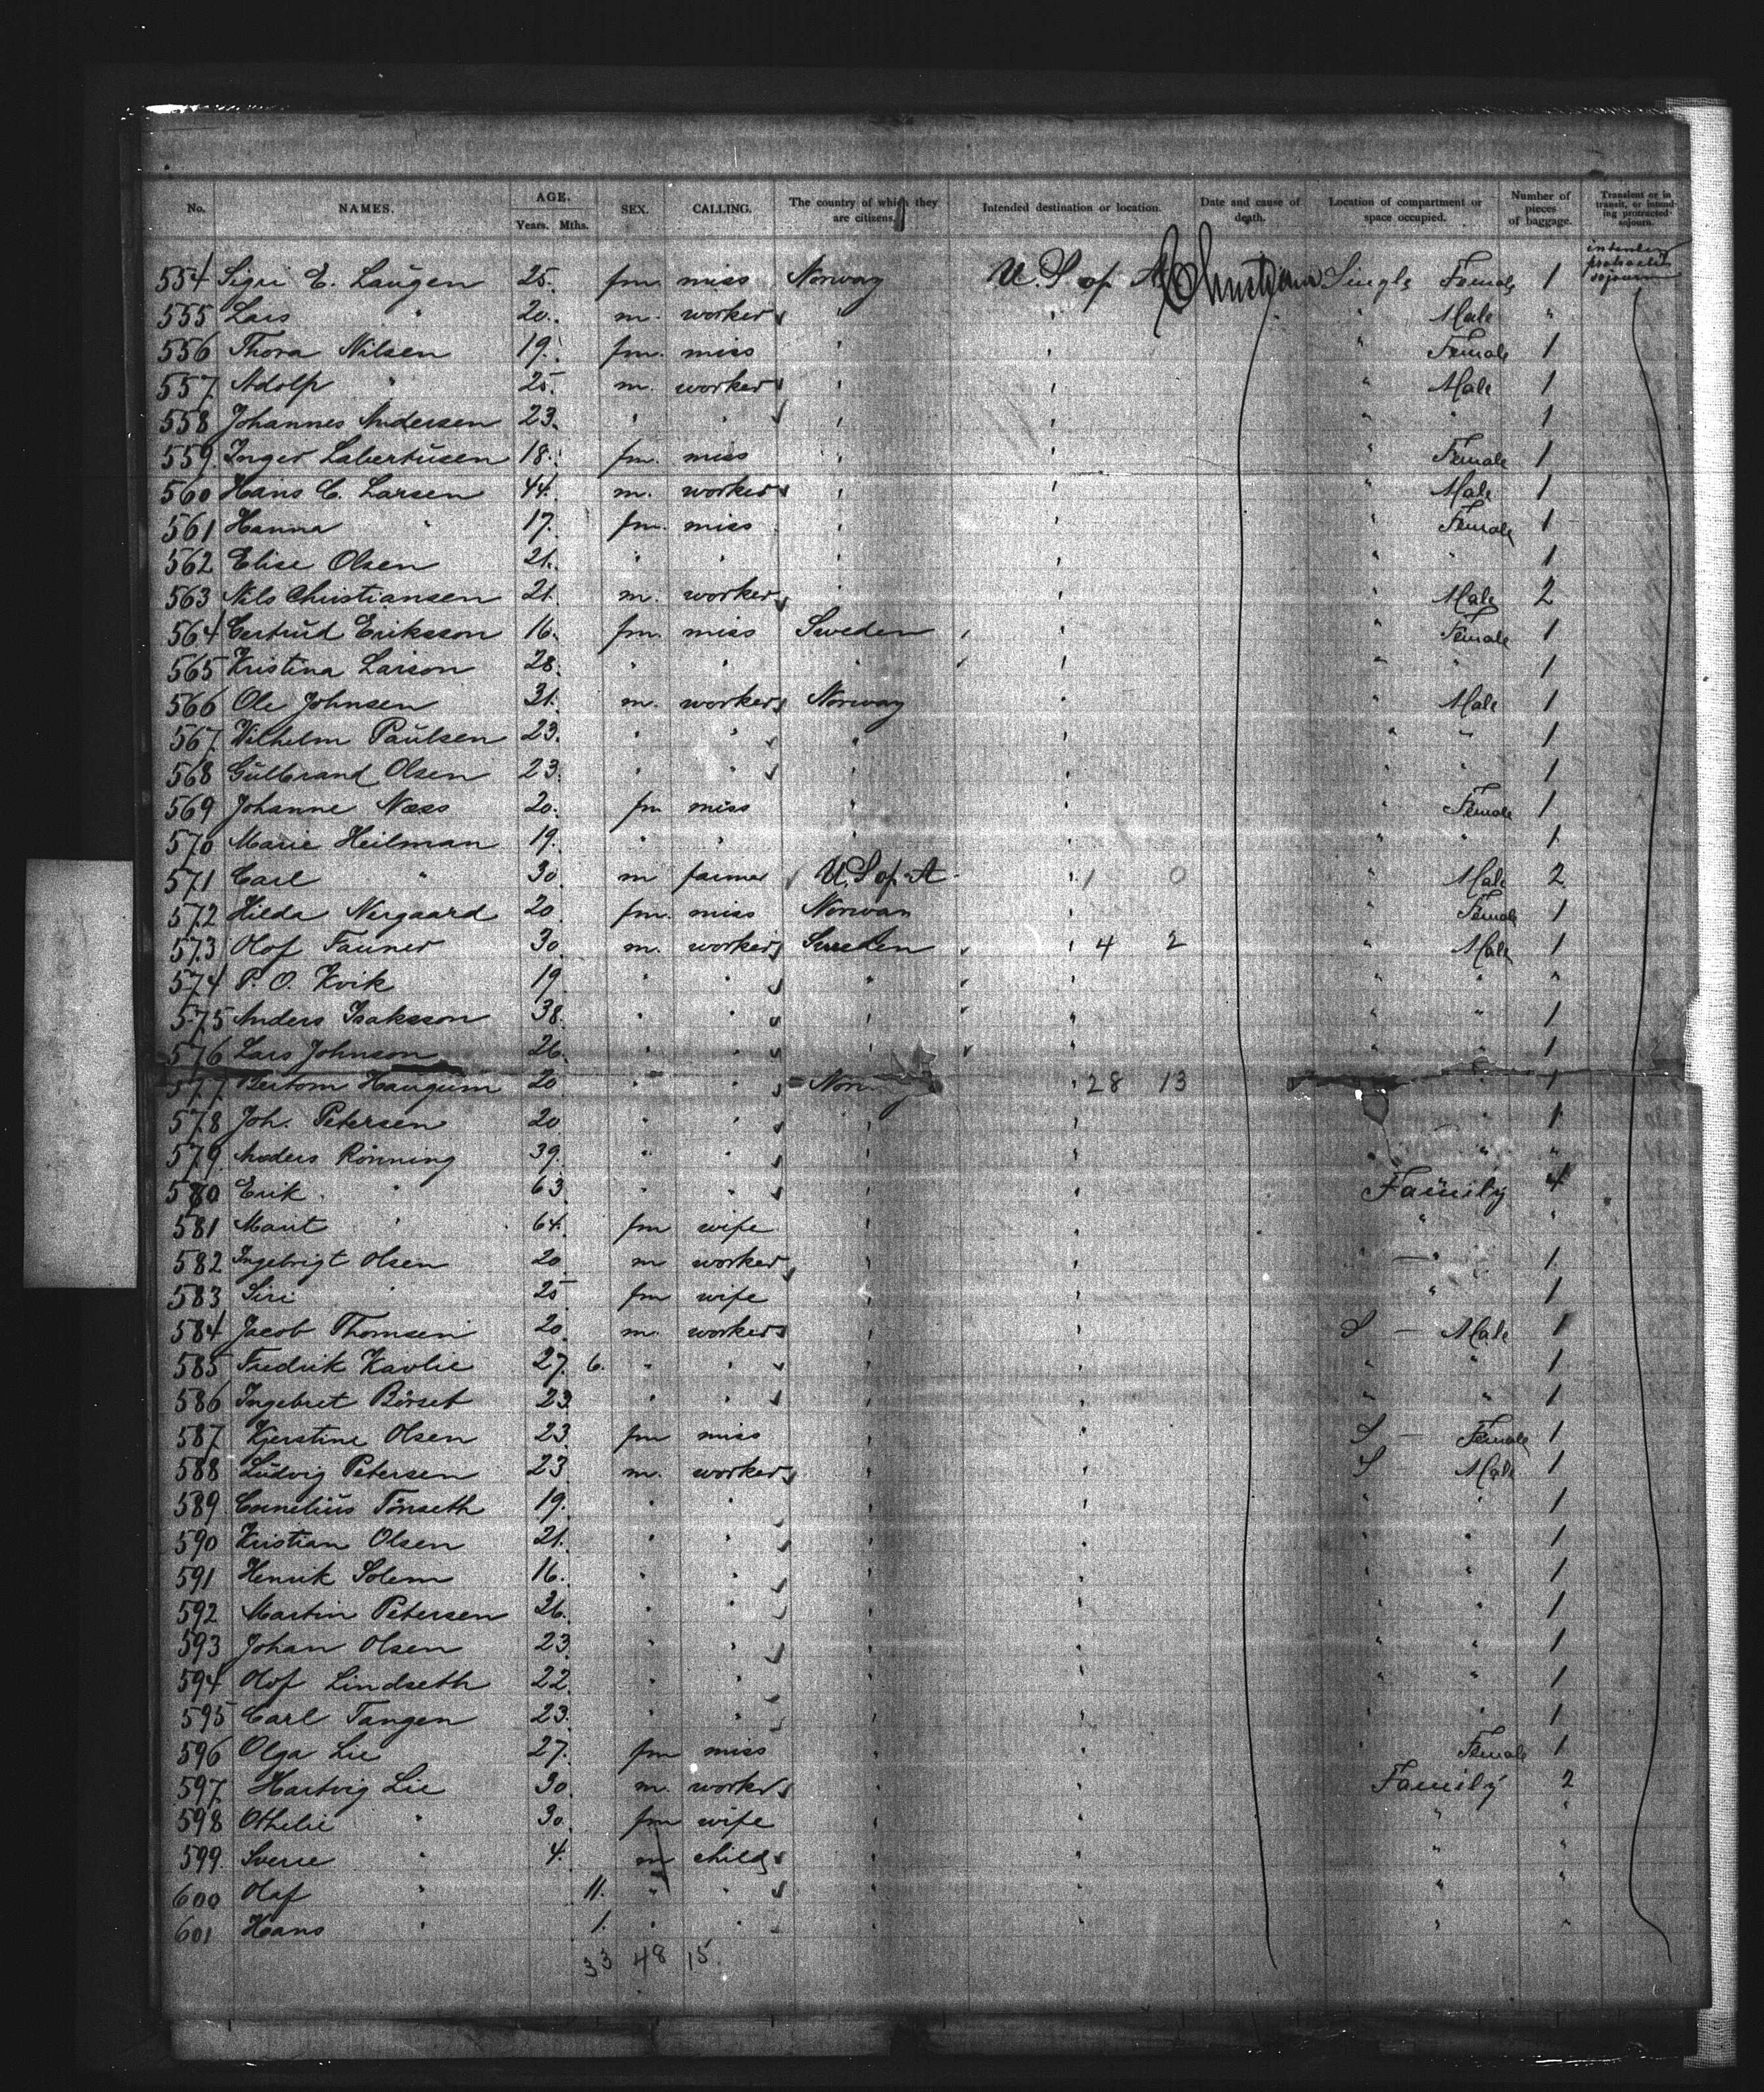 No. NAMES. AGE. Years. Mths. SEX. CALLING. The country of which they are citizens. Intended destination or location. Date and cause of death. Location of compartment or space occupied. Number of pieces of baggage. Transient or in transit, or intending protracted sojourn.
554 Sigri E. Laugen 25. fm. miss Norway U. S of A Christiania Single Female 1 intending protracted sojourn
555 Lars " 20. m. worker " " " Male "
556 Thora Nilsen 19. fm. miss " " " Female 1
557 Adolp " 25. m. worker " " " Male 1
558 Johannes Andersen 23. " " " " " " 1
559. Inger Labertusen 18. fm. miss " " " Female 1
560 Hans C. Larsen 44. m. worker " " " Male 1
561 Hanna " 17. fm. miss " " " Female 1
562 Elise Olsen 21. " " " " " " 1
563 Nils Christiansen 21. m. worker " " " Male 2
564 Gertrud Eriksson 16. fm. miss Sweden " " Female 1
565 Kristina Larson 28. " " " " " " 1
566 Ole Johnsen 31. m. worker Norway " " Male 1
567. Wilhelm Paulsen 23. " " " " " " 1
568 Gulbrand Olsen 23. " " " " " " 1
569 Johanne Næss 20. fm miss " " " Female 1
570 Marie Heilman 19. " " " " " " 1
571 Carl " 30 m farmer U. S of A " 1 0 " Male 2
572 Hilda Nergaard 20 fm. miss Norway " " Female 1
573 Olof Fauner 30. m. worker Sweden " 4 2 " Male 1
574 P. O. Kvik 19 " " " " " " "
575 Anders Isaksson 38. " " " " " " 1
576 Lars Johnson 26. " " " " " " 1
577. Haugum 20 " " Nor " 28 13 " 1
578 Joh. Petersen 20 " " " " " 1
579. Anders Rönning 39. " " " " " " "
580 Erik " 63 " " " " Family 4
581 Marit " 64. fm wife " " " "
582 Ingebrigt Olsen 20 m worker " " " " 1
583 Siri " 25 fm wife " " " 1
584 Jacob Thomsen 20. m. worker " " S - Male 1
585 Fredrik Kavlie 27. 6. " " " " " " 1
586 Ingebret Börset 23 " " " " " " 1
587. Kjerstine Olsen 23 fm miss " " S - Female 1
588 Ludvig Petersen 23 m. worker " " S Male 1
589. Cornelius Tönseth 19. " " " " " " 1
590 Kristian Olsen 21. " " " " " " 1
591 Henrik Solem 16. " " " " " " 1
592 Martin Petersen 26. " " " " " " 1
593 Johan Olsen 23 " " " " " " 1
594 Olof Lindseth 22 " " " " " " 1
595 Carl Tangen 23. " " " " " " 1
596 Olga Lie 27. fm miss " " " Female 1
597. Hartvig Lie 30. m. worker " " Family 2
598 Othelie " 30. fm wife " " " "
599. Sverre " 4. m child " " " "
600 Olaf " 11. " " " " " "
601 Hans " 1. " " " " " "
33 48 15.